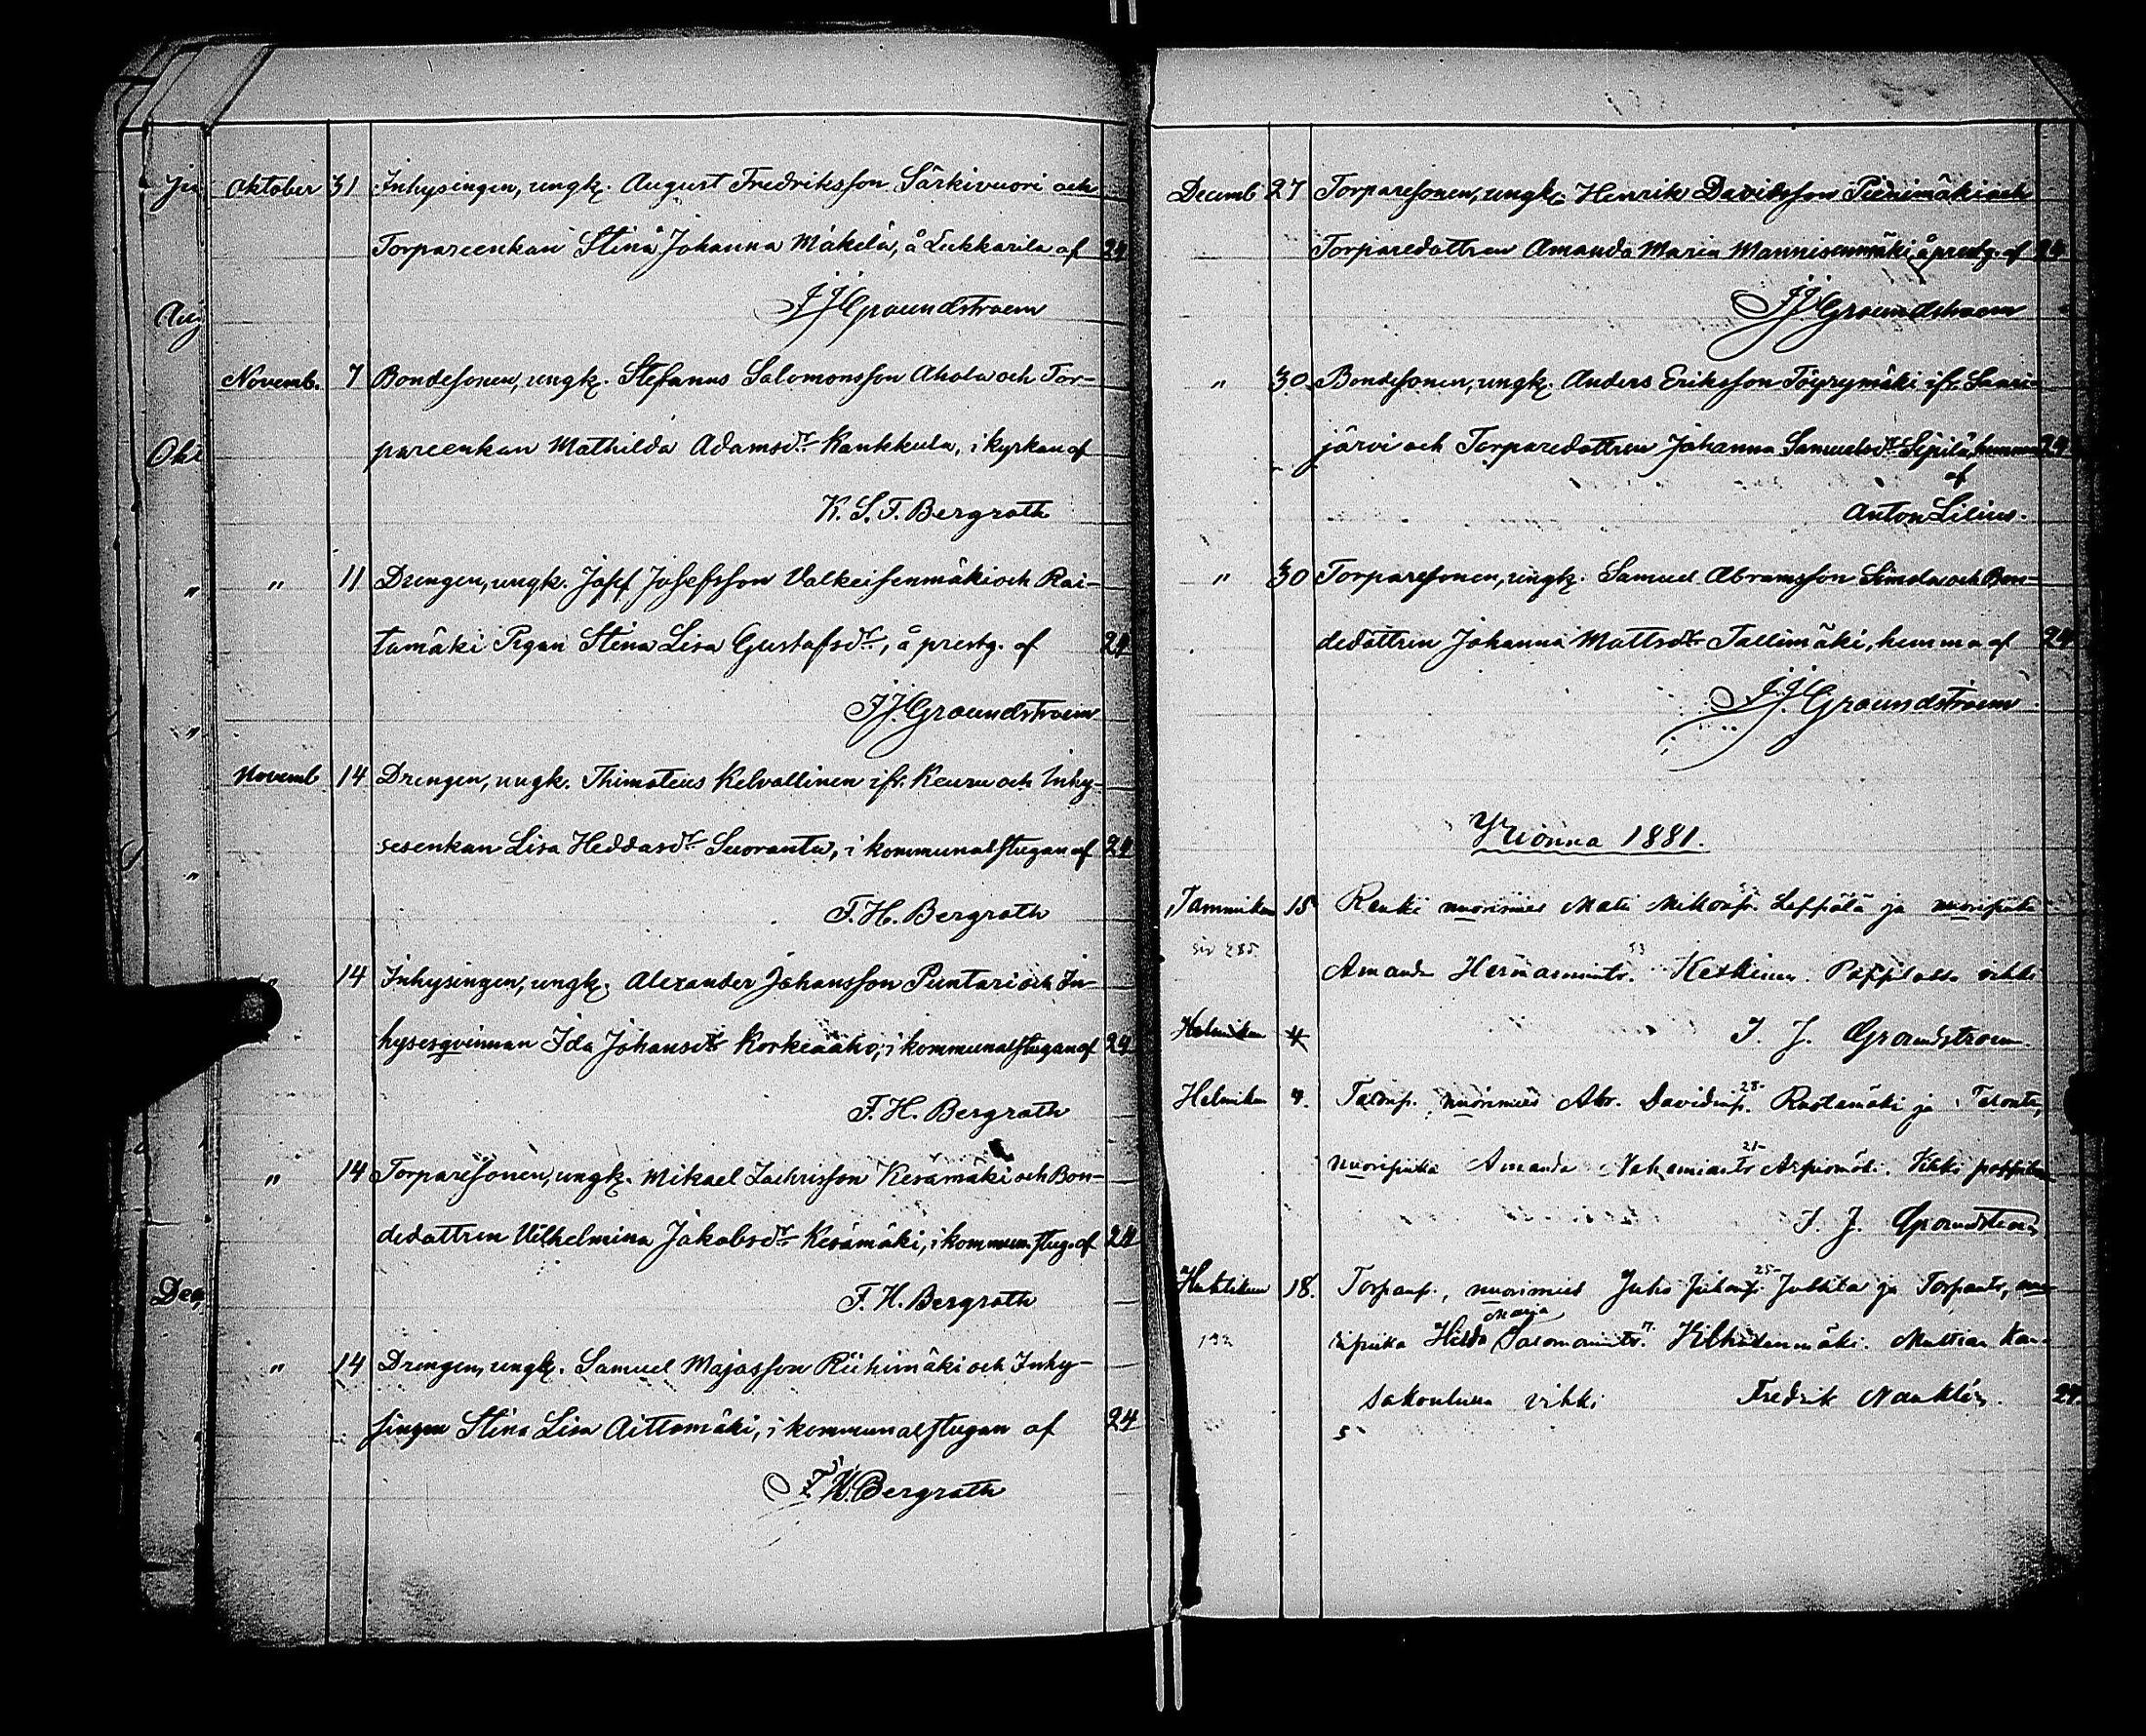 Oktober 31 Inhysingen, ungk. August Fredriksson Särkivuori och
Torpareenkan Stina Johanna Mäkelä, å Lukkarila af 24
F J Groundstroem
Novemb. 7 Bondesonen, ungk. Stefanus Salomonsson Ahola och Tor-
pareenkan Mathilda Adamsdr Kankkula, i kyrkan af
K. S. F. Bergroth
" 11 Drengen, ungk. Josef Josefsson Valkeisenmäki och Rai-
tamäki Pigan Stina Lisa Gustafsdr, å prestg. af 24
F J. Groundstroem
Novemb 14 Drengen, ungk. Thimoteus Kelvallinen ifr. Keuru och Inhy-
sesenkan Lisa Heddasdr Suoranta, i kommunalstugan af 24
F. H. Bergroth
" 14 Inhysingen, ungk. Alexander Johansson Puntari och In-
hysesqvinnan Ida Johansdr Korkeaaho, i kommunalstugan af 24
F. H. Bergroth
" 14 Torparesonen, ungk. Mikael Zachrisson Kesämäki och Bon-
dedattren Vilhelmina Jakobsdr Kesämäki, i kommun. stug. af 24
F. H. Bergroth
" 14 Drengen, ungk. Samuel Majasson Riihimäki och Inhy-
singen Stina Lisa Aittomäki, i kommunalstugan af 24
F. H. Bergroth
Decemb 27 Torparesonen, ungk. Henrik Davidsson Pienimäki och
Torparedattren Amanda Maria Mannisenmäki, å prestg. af 24
F J Groundstroem
" 30 Bondesonen, ungk. Anders Eriksson Töyrymäki ifr. Saari-
järvi och Torparedattren Johanna Samuelsdr Sipilä, hemma 24
af
Anton Lilius.
" 30 Torparesonen, ungk. Samuel Abramsson Simola och Bon-
dedattren Johanna Mattsdr Tallimäki, hemma af 24
F. J. Groundstroem
Vuonna 1881.
Tammikun 15 Renki nuorimies Matti Mikonp. Leppälä ja nuoripiika
siv 285 Amanda Hermannintr. Keskinen Pappilassa vihki
Helmikun 4 F. J. Groundstroem
Helmikun 4. Talonp. nuorimies Abr. Davidinp. 28 Rastamäki ja Talontr,
nuoripiika Amanda Nehemiantr 21 Arpiomäki. Vihki pappilassa
F. J. Groundstroem
Huhtikun 18. Torparip., nuorimies Juho Juhonp. 25 Jukkila ja Torparitr, nuo-
Maria
192 ripiika Hilda Salomonintr. Vilhusenmäki. Multian kan-
sakoulussa vihki Fredrik Nauklér. 24.
5